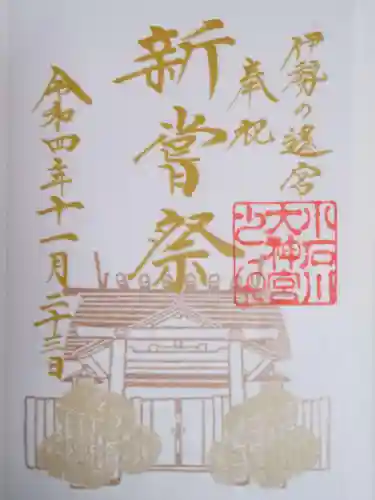 伊勢の遥宮
奉祝
新嘗祭
令和四年十一月二十三日
小石川
大神宮